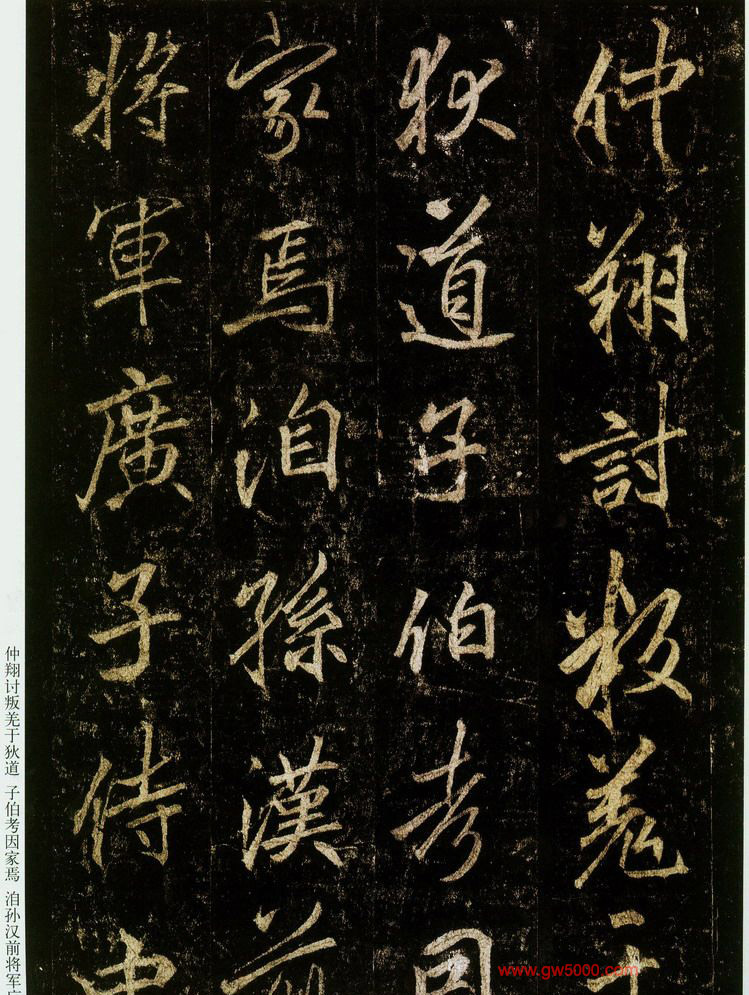 仲翔討叛羌于
狄道子伯考因
家焉洎孫漢前
將軍廣子侍中
仲翔讨叛羌于狄道 子伯考因家焉 洎孙汉前将军广
www.gw5000.com